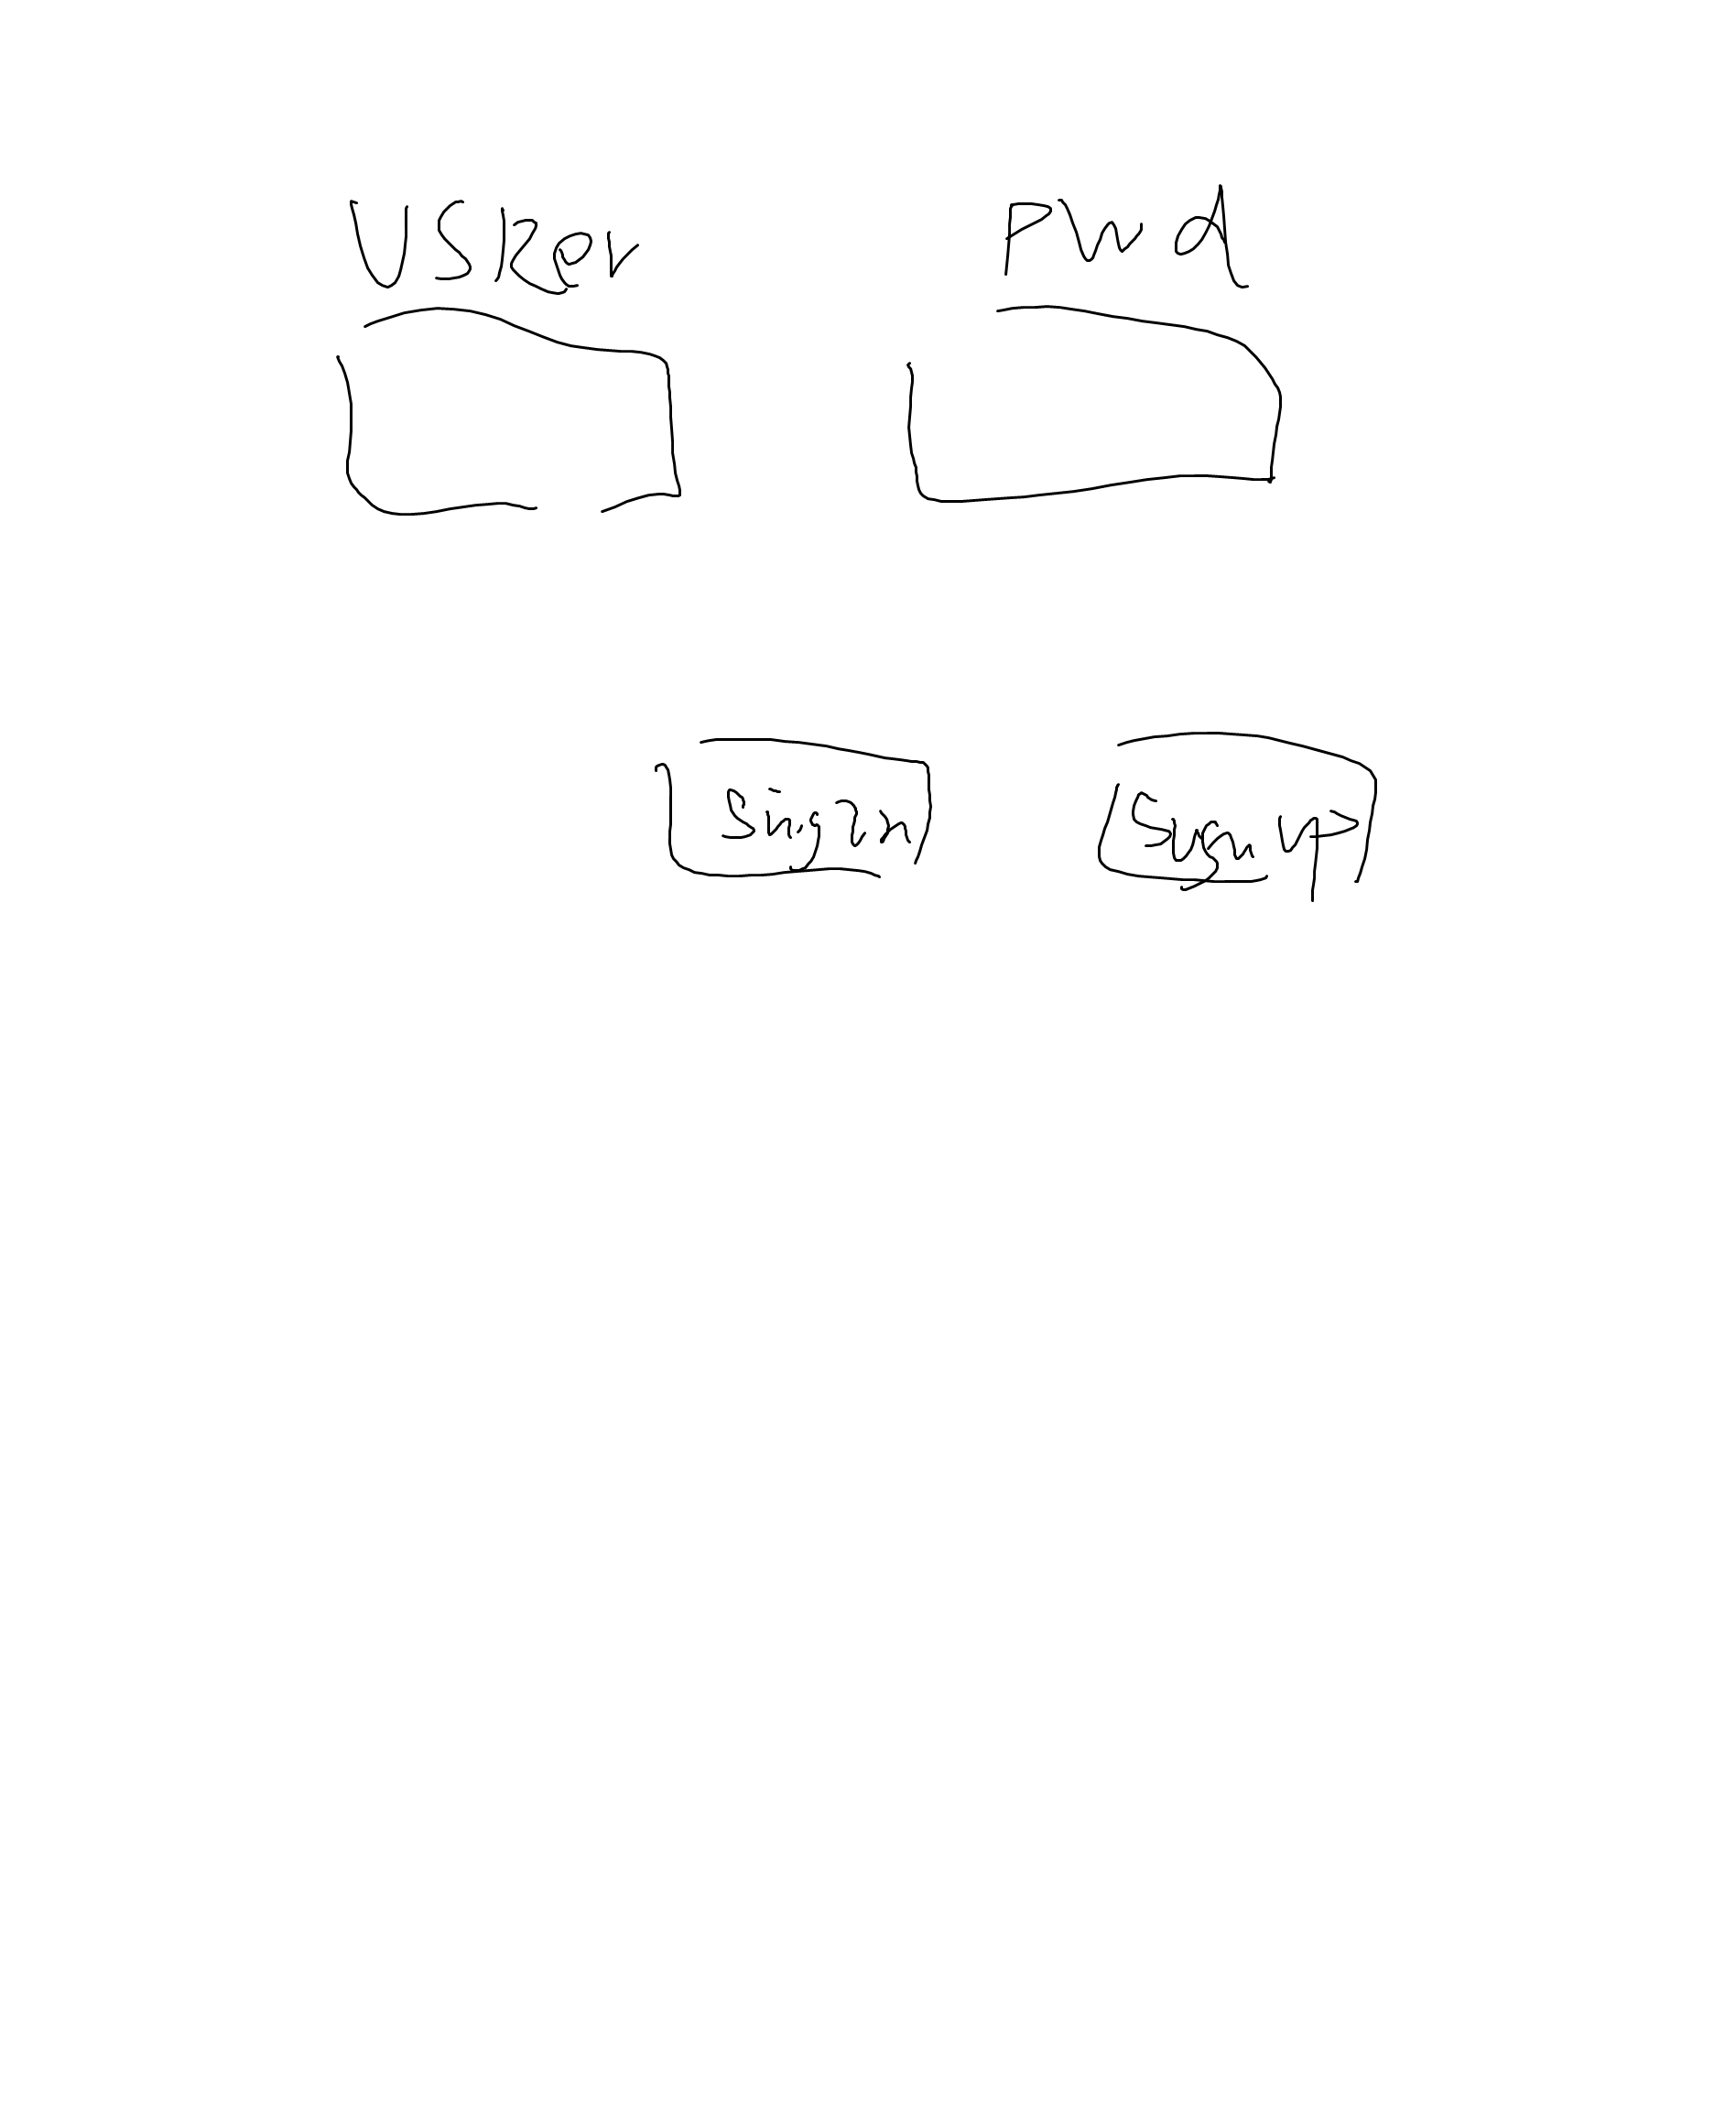 User Pwd
Sign in Sign up